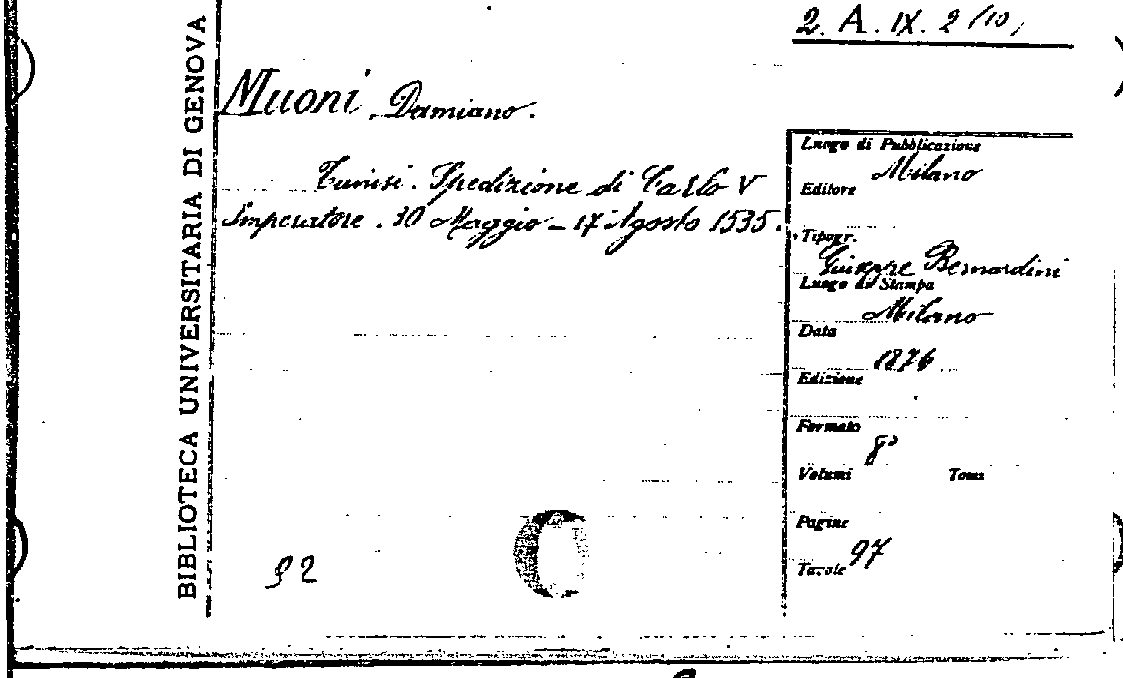 2. A. IX. 2 (10)
BIBLIOTECA UNIVERSITARIA DI GENOVA
Muoni, Damiano.
Tunisi. Spedizione di Carlo V
Imperatore. 30 Maggio - 17 Agosto 1535.
Luogo di Pubblicazione
Milano
Editore
Tipogr.
Giuseppe Bernardini
Luogo di Stampa
Milano
Data
1876
Edizione
Formato
8°
Volumi Tomi
Pagine
97
Tavole
92